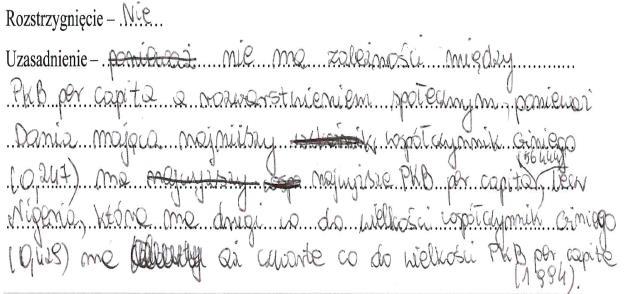 Rozstrzygnięcie – Nie
Uzasadnienie – ponieważ nie ma zależności między
PKB per capita a rozwarstnieniem społecznym, ponieważ
Dania mająca najniższy współczynnik Giniego
(0,247) ma najwyższe PKB per capita (56444), lecz
Nigeria, która ma drugi co do wielkości współczynnik Giniego
(0,429) ma aż czwarte co do wielkości PKB per capita
(1994).